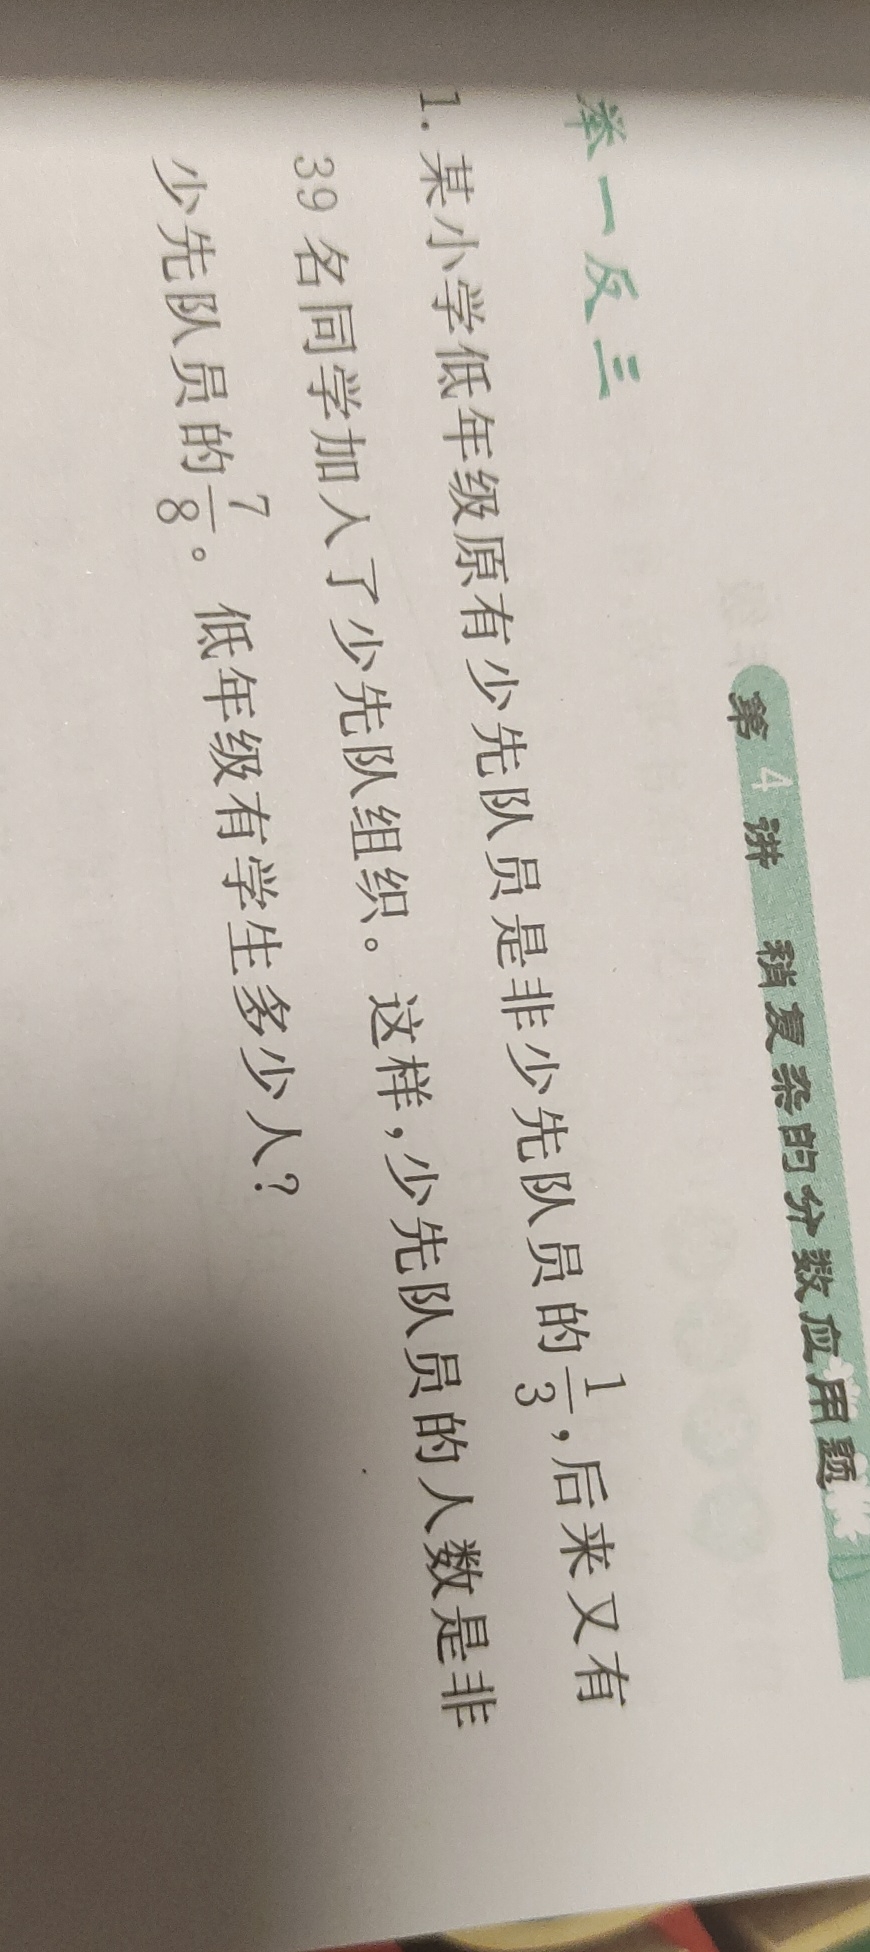 第4讲 稍复杂的分数应用题
举一反三
1. 某小学低年级原有少先队员是非少先队员的1/3,后来又有
39名同学加入了少先队组织。这样,少先队员的人数是非
少先队员的7/8。低年级有学生多少人?